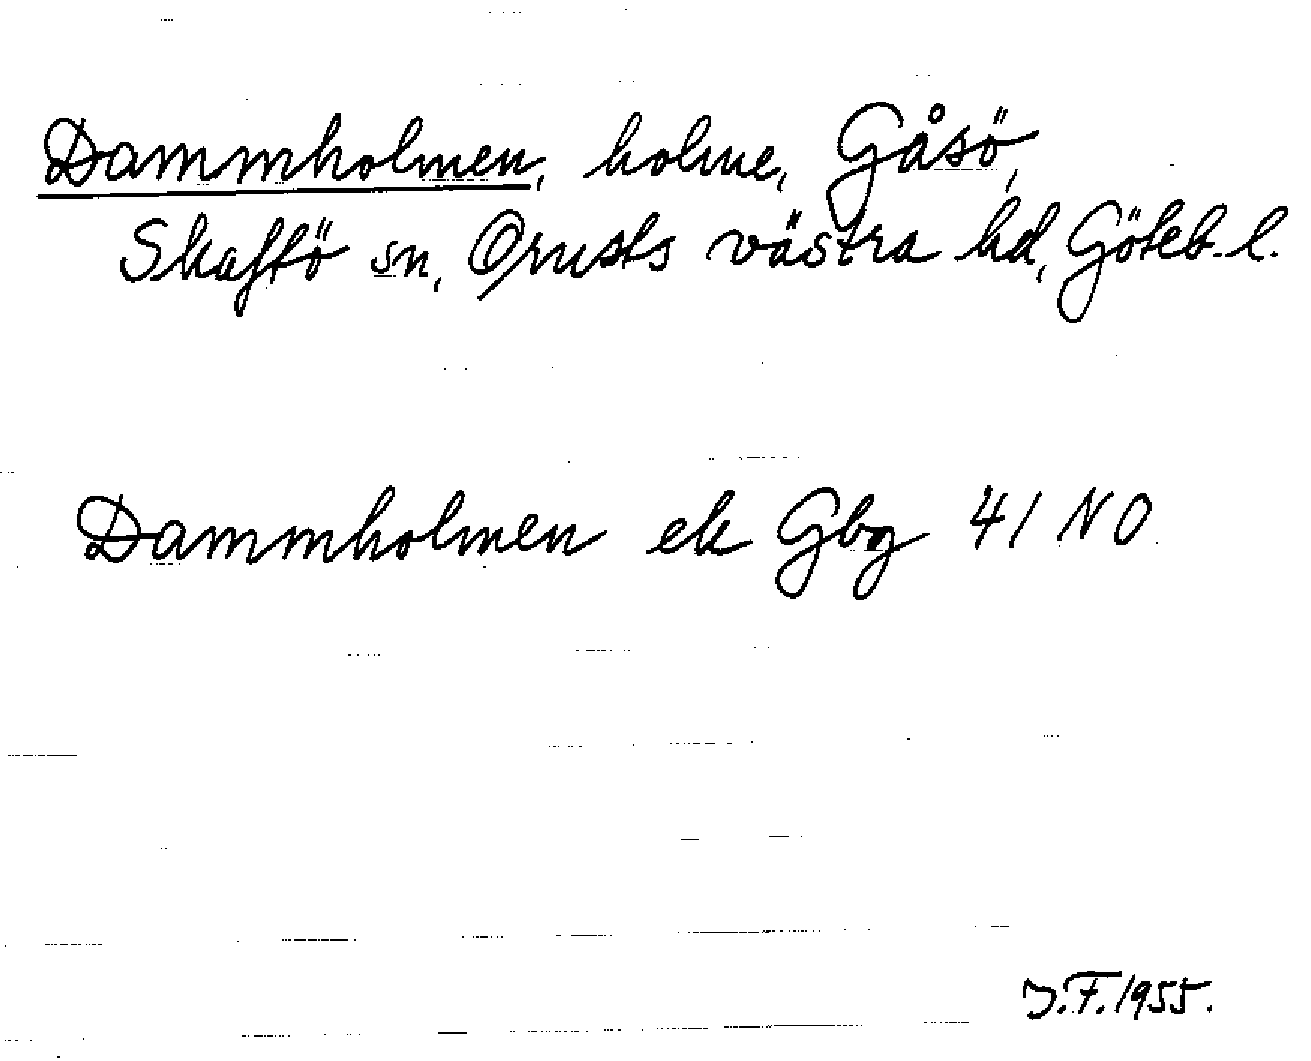 Dammholmen, holme, Gåsö,
Skaftö sn, Orusts västra hd, Göteb. l.
Dammholmen ek Gbg 41 NO
J.F. 1955.